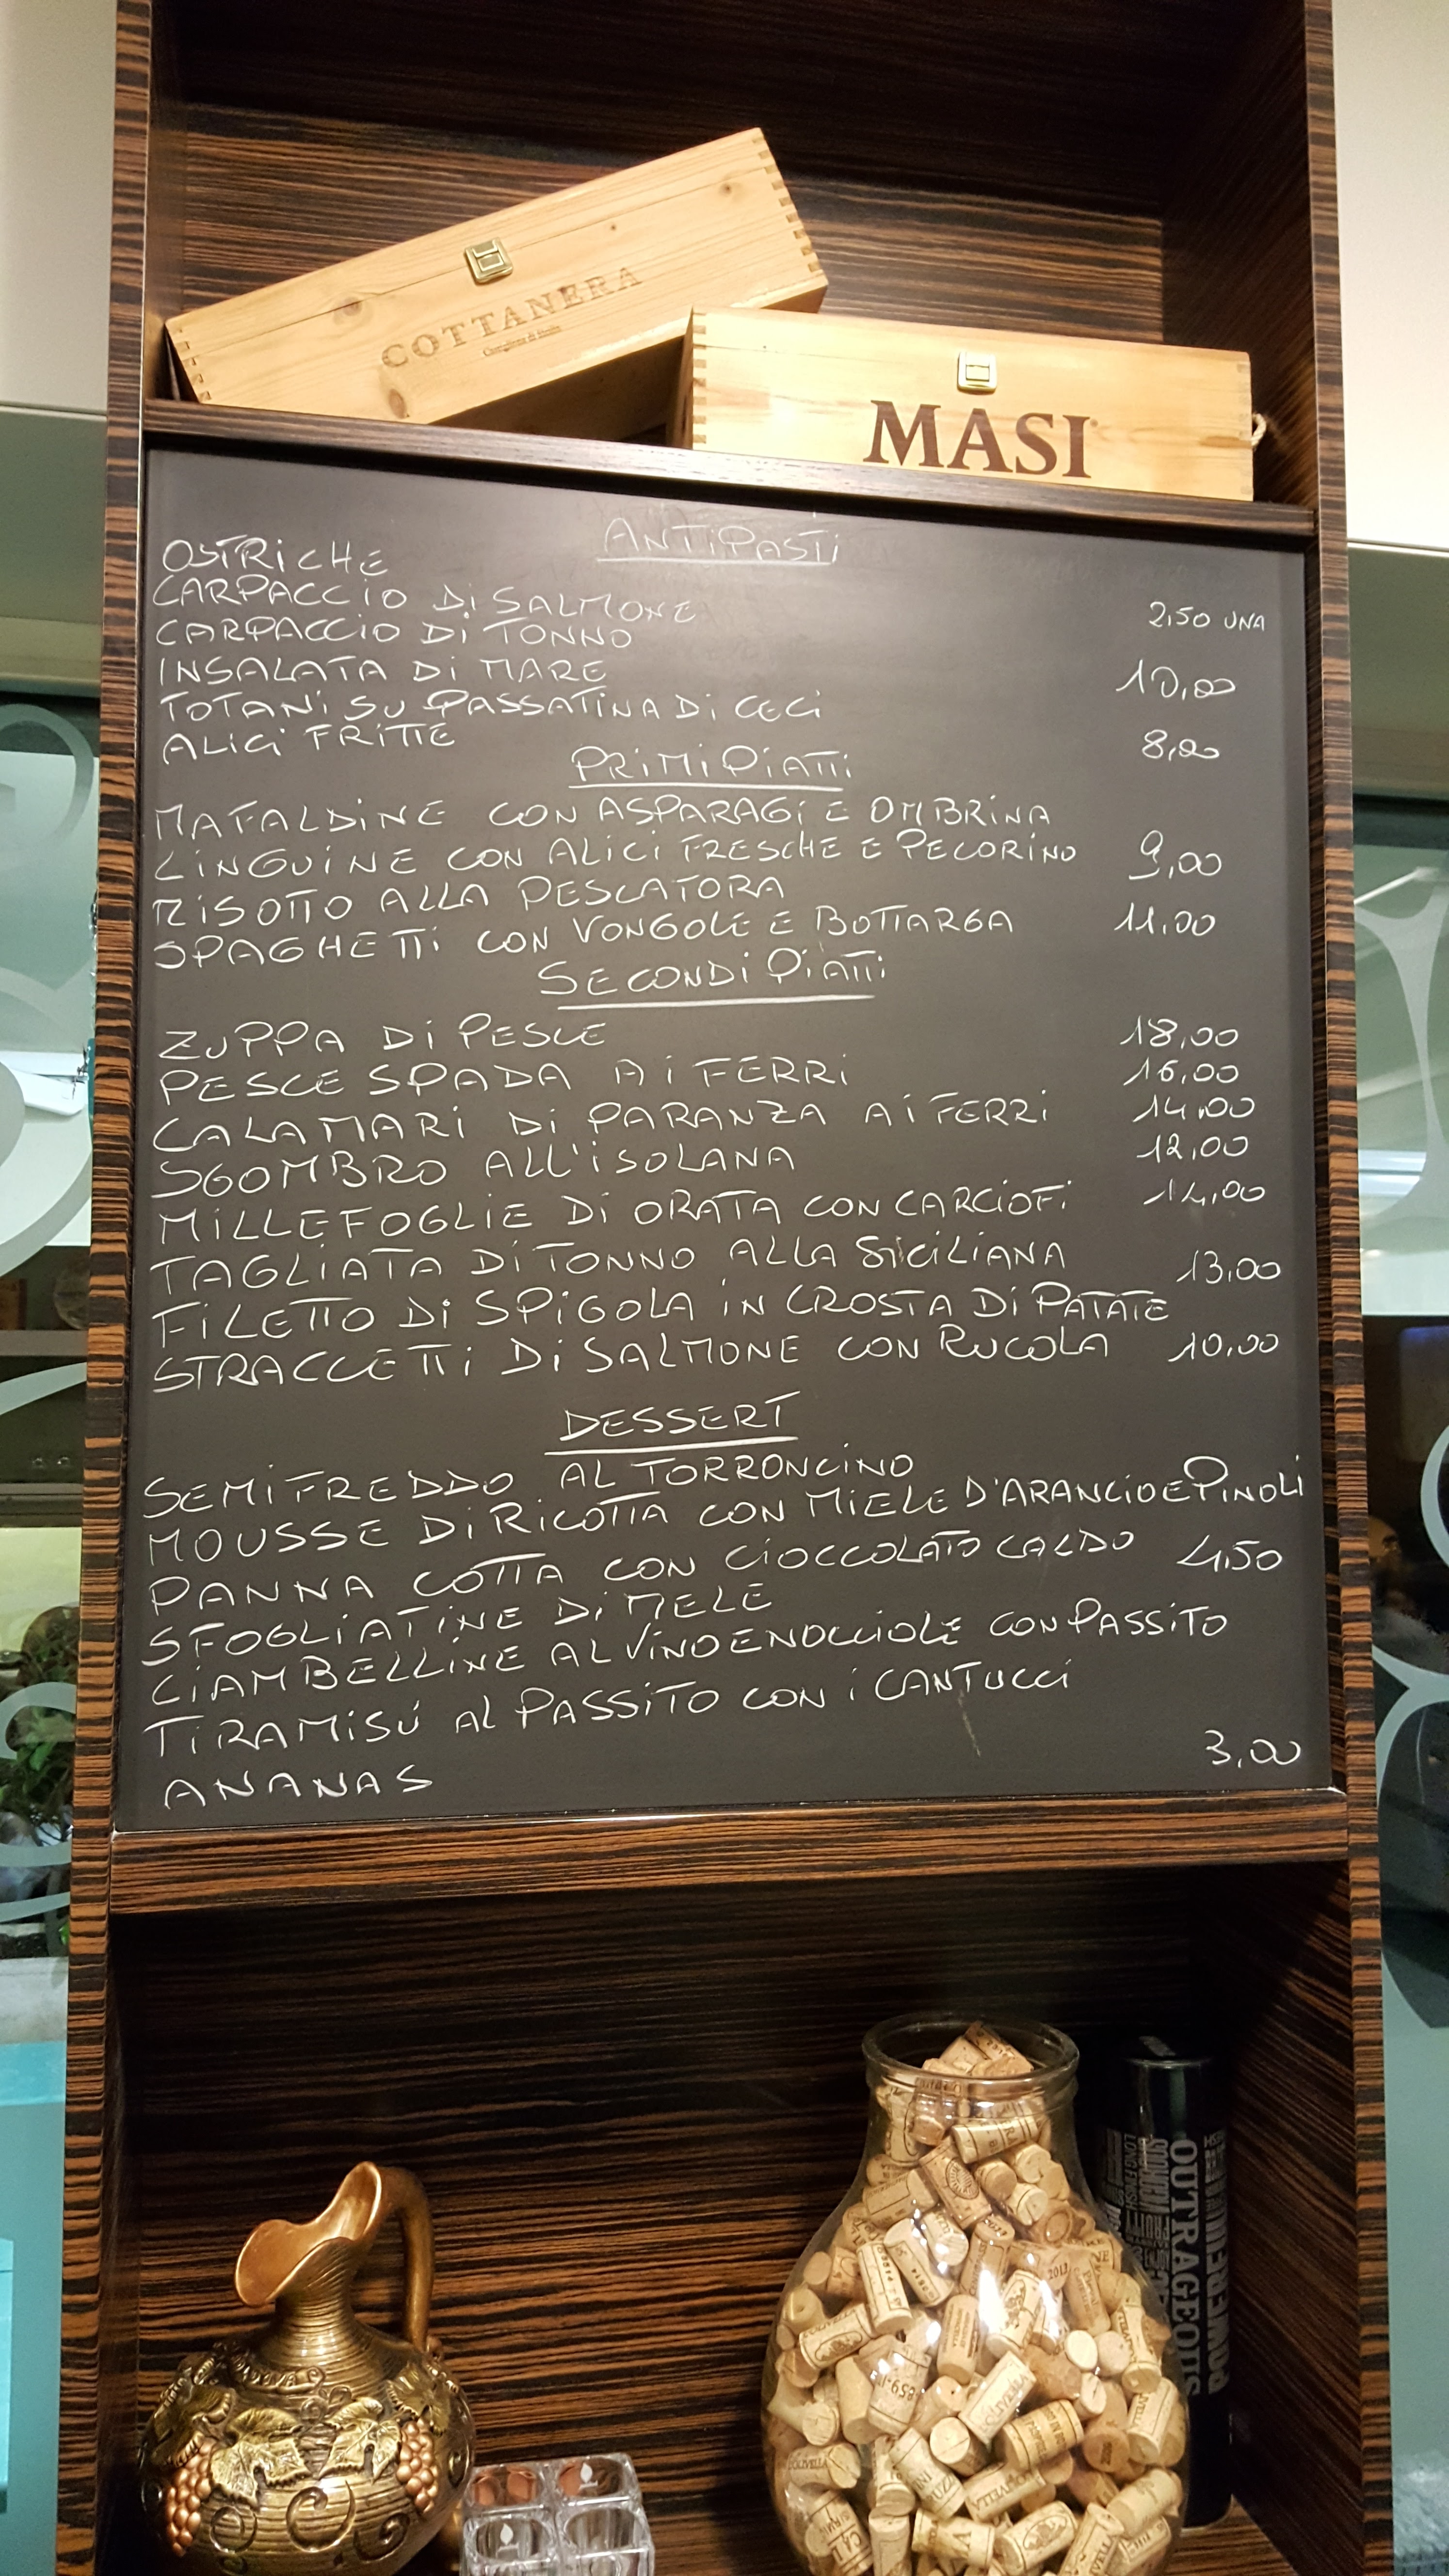 COTTANERA
MASI
ANTIPASTI
OSTRICHE 2,50 UNA
CARPACCIO DI SALMONE
CARPACCIO DI TONNO 10,00
INSALATA DI MARE
TOTANI SU PASSATINA DI CECI 8,00
ALICI FRITTE
PRIMI PIATTI
MAFALDINE CON ASPARAGI E OMBRINA
LINGUINE CON ALICI FRESCHE E PECORINO 9,00
RISOTTO ALLA PESCATORA
SPAGHETTI CON VONGOLE E BOTTARGA 11,00
SECONDI PIATTI
ZUPPA DI PESCE 18,00
PESCE SPADA AI FERRI 16,00
CALAMARI DI PARANZA AI FERRI 14,00
SGOMBRO ALL'ISOLANA 12,00
MILLEFOGLIE DI ORATA CON CARCIOFI 14,00
TAGLIATA DI TONNO ALLA SICILIANA 13,00
FILETTO DI SPIGOLA IN CROSTA DI PATATE
STRACCETTI DI SALMONE CON RUCOLA 10,00
DESSERT
SEMIFREDDO AL TORRONCINO
MOUSSE DI RICOTTA CON MIELE D'ARANCIO E PINOLI
PANNA COTTA CON CIOCCOLATO CALDO 4,50
SFOGLIATINE DI MELE
CIAMBELLINE AL VINO E NOCCIOLE CON PASSITO
TIRAMISÚ AL PASSITO CON I CANTUCCI
ANANAS 3,00
OUTRAGEOUS